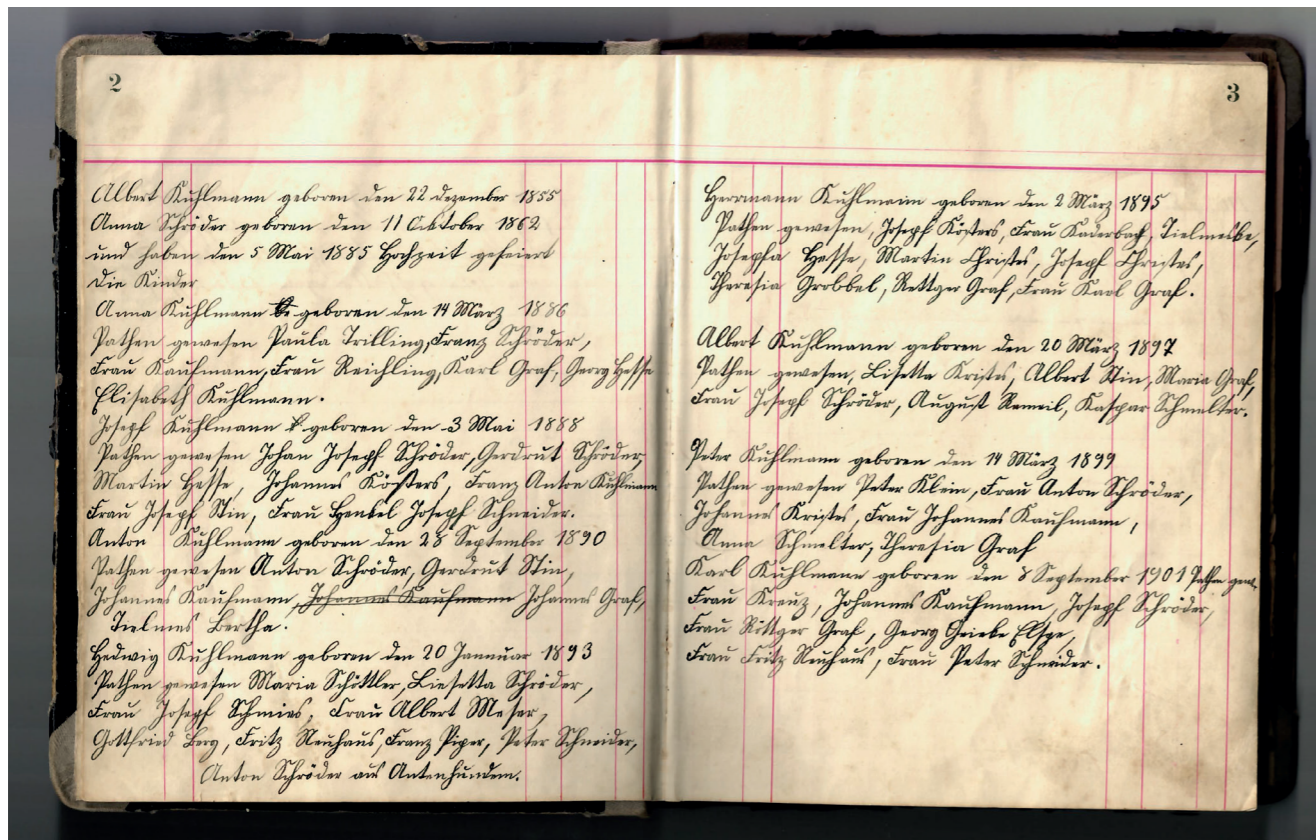 2
Albert Kuhlmann geboren den 22 Dezember 1855
Anna Schröder geboren den 11 Ocktober 1862
und haben den 5 Mai 1885 Hochzeit gefeiert
Die Kinder
Anna Kuhlmann geboren den 14 März 1886
Pathen gewesen Paula Trilling, Franz Schröder,
Frau Kaufmann, Frau Reichling, Karl Graf, Georg Hesse
Elisabeth Kuhlmann.
Josepf Kuhlmann geboren den 3 Mai 1888
Pathen gewesen Johan Josepf Schröder, Gerdrut Schröder,
Martin Hesse, Johannes Kösters, Franz Anton Kuhlmann
Frau Josepf Stin, Frau Henkel Josepf Schneider.
Anton Kuhlmann geboren den 28 September 1890
Pathen gewesen Anton Schröder, Gerdrut Stin,
Johannes Kaufmann, Johannes Kaufmann Johannes Graf,
Tielmes Bertha.
Hedwig Kuhlmann geboren den 20 Jannuar 1893
Pathen gewesen Maria Schöttler, Liesetta Schröder,
Frau Josepf Schmies, Frau Albert Meser,
Gottfried Berg, Fritz Neuhaus, Franz Piper, Peter Schneider,
Anton Schröder aus Antenhundem.
3
Herrmann Kuhlmann geboren den 2 März 1895
Pathen gewesen, Josepf Kösters, Frau Kaderbach, Tielmelbe,
Josepfa Hesse, Martin Christes, Josepf Christes,
Theresia Grobbel, Rettger Graf, Frau Karl Graf.
Albert Kuhlmann geboren den 20 März 1897
Pathen gewesen, Lisetta Kristes, Albert Stin, Maria Graf,
Frau Josepf Schröder, August Remeil, Kaspar Schmelter.
Peter Kuhlmann geboren den 14 März 1899
Pathen gewesen Peter Klein, Frau Anton Schröder,
Johannes Kristes, Frau Johannes Kaufmann,
Anna Schmelter, Theresia Graf
Karl Kuhlmann geboren den 8 September 1901 Pathen gewe
Frau Kreuz, Johannes Kaufmann, Josepf Schröder,
Frau Röttger Graf, Georg Griebe Elspe,
Frau Fritz Neuhaus, Frau Peter Schneider.